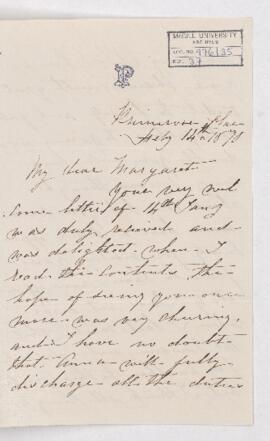 McGILL UNIVERSITY
ARCHIVES
ACC. NO. 976/35
REF. 37
P
Primrose Place
Feby 14th 1870
My dear Margaret
Your very wel
come letter of 14th Jany
was duly received and
was delighted when I
read the contents the
hope of seeing you once
more was very cheering,
and I have no doubt
that Anna will fully
discharge all the duties